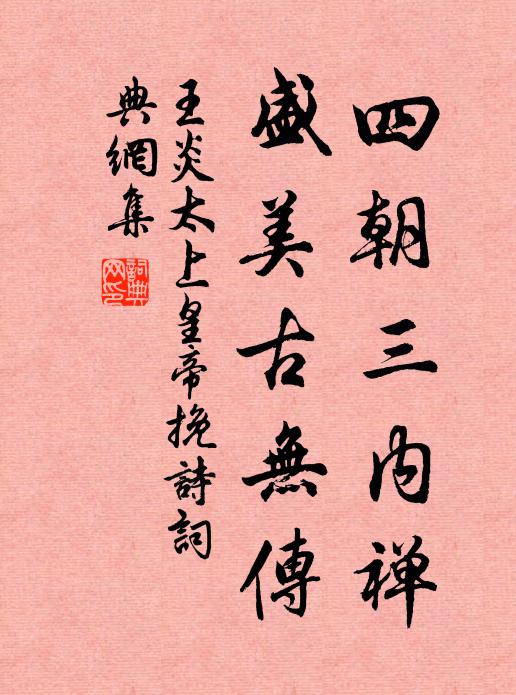 四朝三内禅
盛美古無傳
王炎太上皇帝挽詩詞
典網集
詞典網印